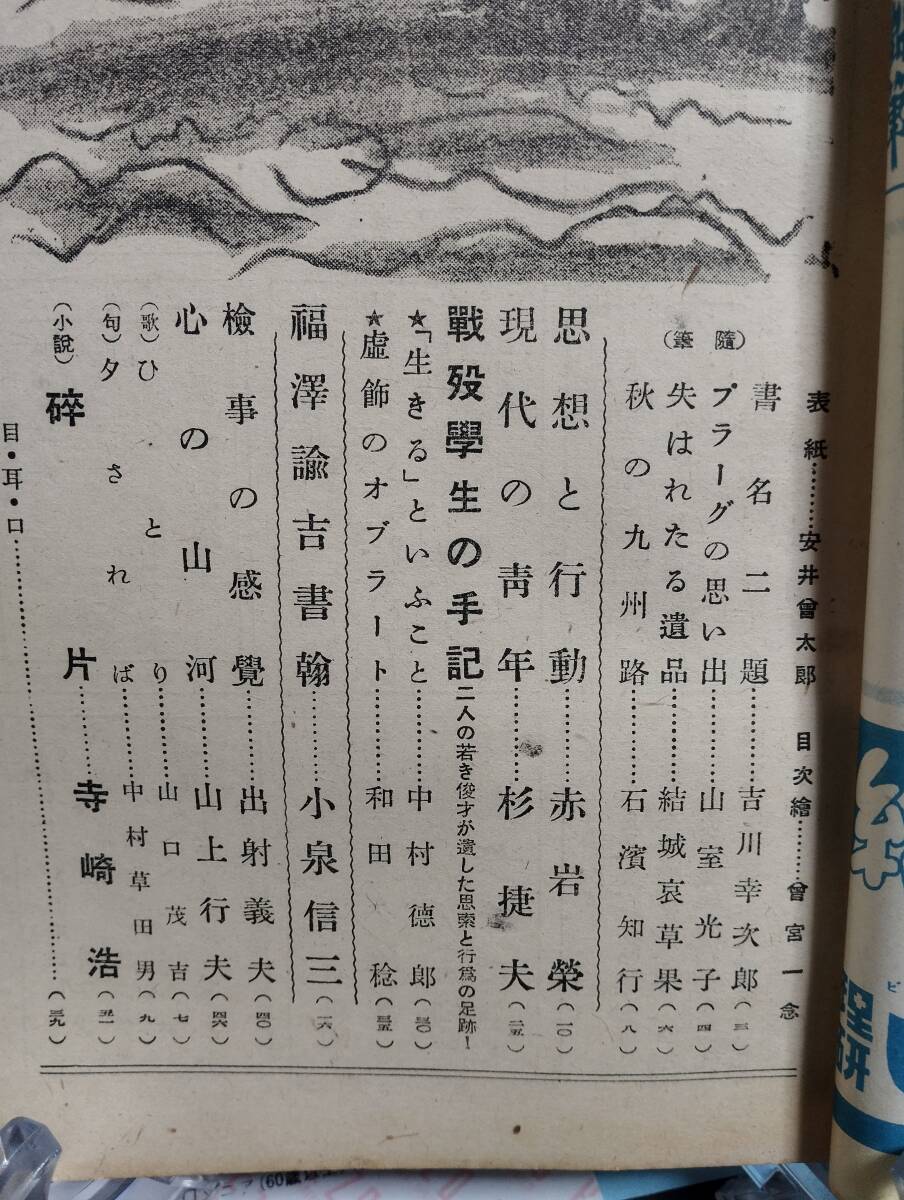 表紙………安井曾太郎　目次繪………曾宮一念
（隨筆）
書名二題………吉川幸次郎（三）
プラーグの思い出………山室光子（四）
失はれたる遺品………結城哀草果（六）
秋の九州路………石濱知行（八）
思想と行動………赤岩榮（一〇）
現代の靑年………杉捷夫（二五）
戰歿學生の手記 二人の若き俊才が遺した思索と行爲の足跡！
★「生きる」といふこと………中村德郎（三〇）
★虛飾のオブラート………和田稔（三五）
福澤諭吉書翰………小泉信三（一六）
檢事の感覺………出射義夫（四〇）
心の山河………山上行夫（四六）
（歌）ひとり………山口茂吉（七）
（句）夕されば………中村草田男（九）
（小說）碎片………寺崎浩（五一）
目・耳・口………（三九）
理研
ビ